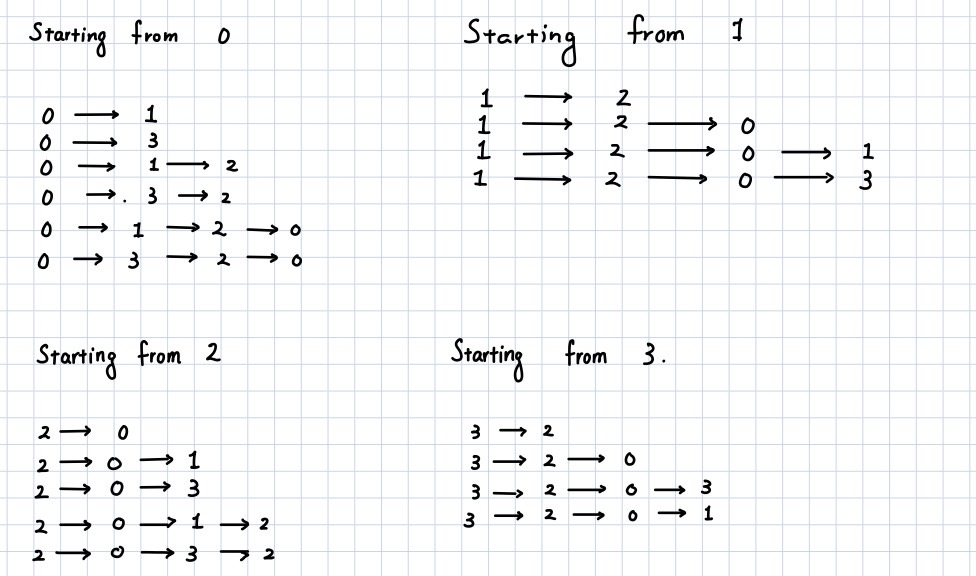 Starting from 0
0 → 1
0 → 3
0 → 1 → 2
0 →. 3 → 2
0 → 1 → 2 → 0
0 → 3 → 2 → 0
Starting from 1
1 → 2
1 → 2 → 0
1 → 2 → 0 → 1
1 → 2 → 0 → 3
Starting from 2
2 → 0
2 → 0 → 1
2 → 0 → 3
2 → 0 → 1 → 2
2 → 0 → 3 → 2
Starting from 3.
3 → 2
3 → 2 → 0
3 → 2 → 0 → 3
3 → 2 → 0 → 1